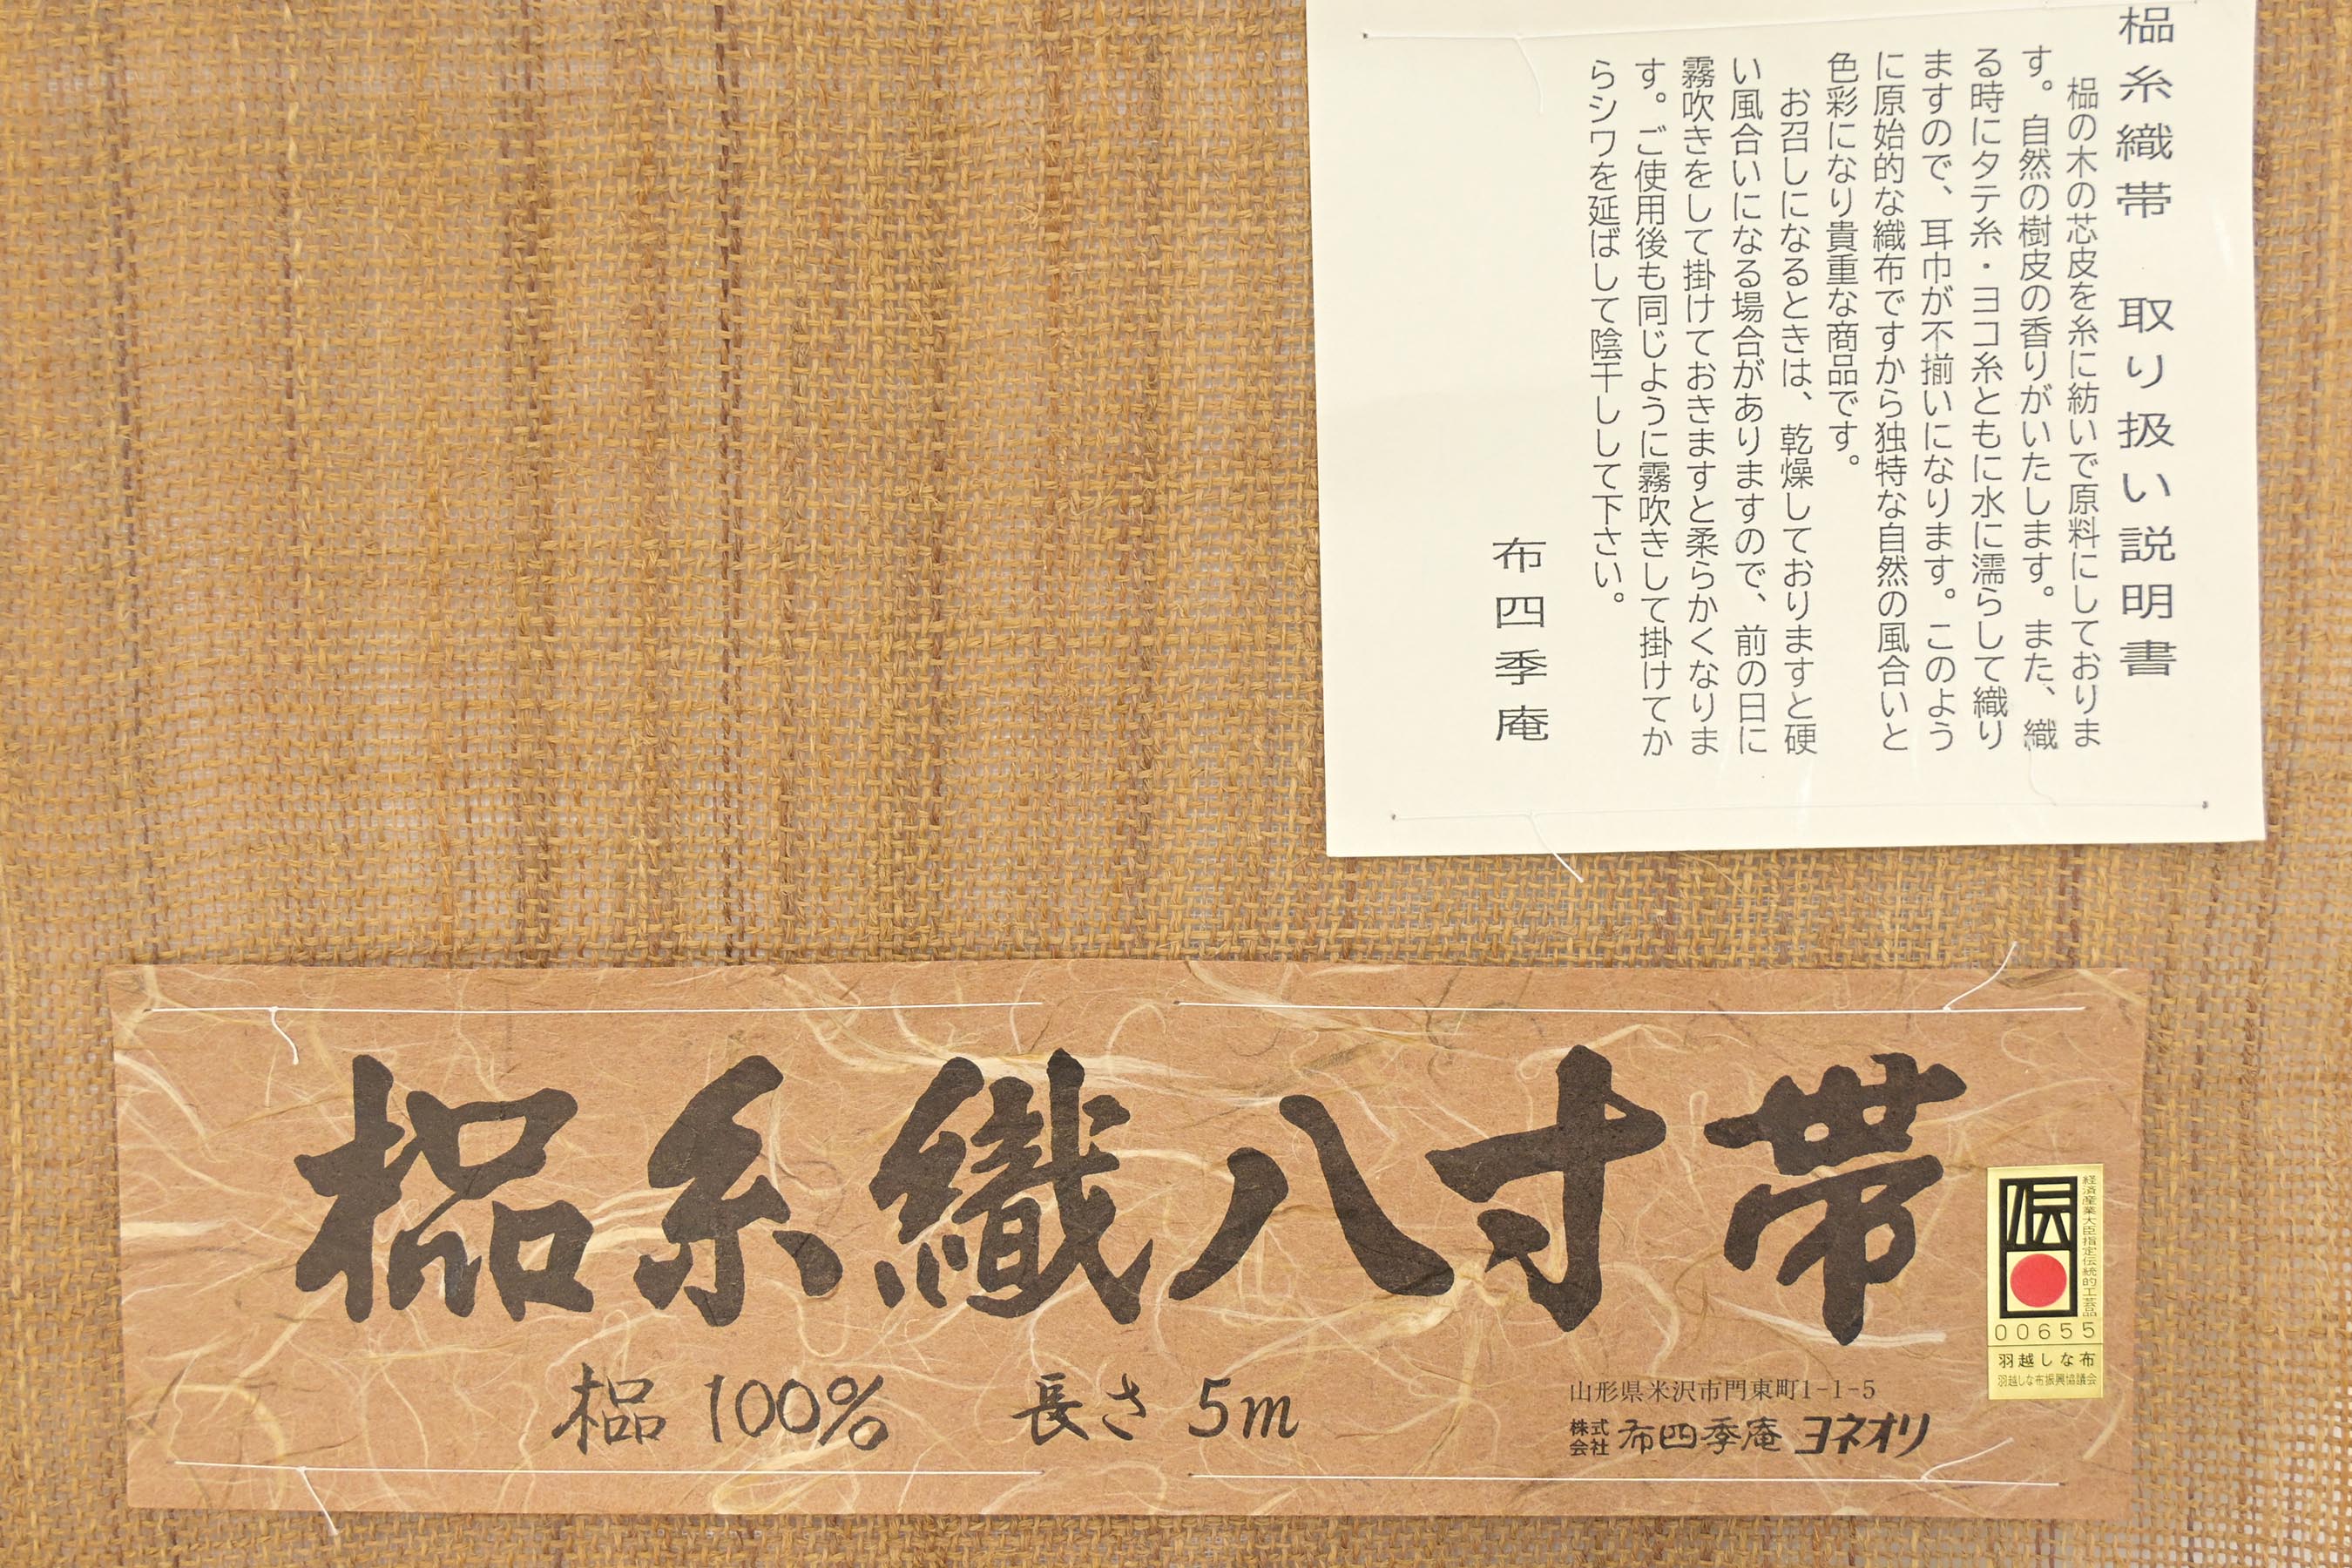 榀糸織帯　取り扱い説明書
　榀の木の芯皮を糸に紡いで原料にしておりま
す。自然の樹皮の香りがいたします。また、織
る時にタテ糸・ヨコ糸ともに水に濡らして織り
ますので、耳巾が不揃いになります。このよう
に原始的な織布ですから独特な自然の風合いと
色彩になり貴重な商品です。
　お召しになるときは、乾燥しておりますと硬
い風合いになる場合がありますので、前の日に
霧吹きをして掛けておきますと柔らかくなりま
す。ご使用後も同じように霧吹きして掛けてか
らシワを延ばして陰干しして下さい。
布四季庵
榀糸織八寸帯
榀 100% 長さ 5m
山形県米沢市門東町1-1-5
株式会社 布四季庵 ヨネオリ
伝
経済産業大臣指定伝統的工芸品
00655
羽越しな布
羽越しな布振興協議会